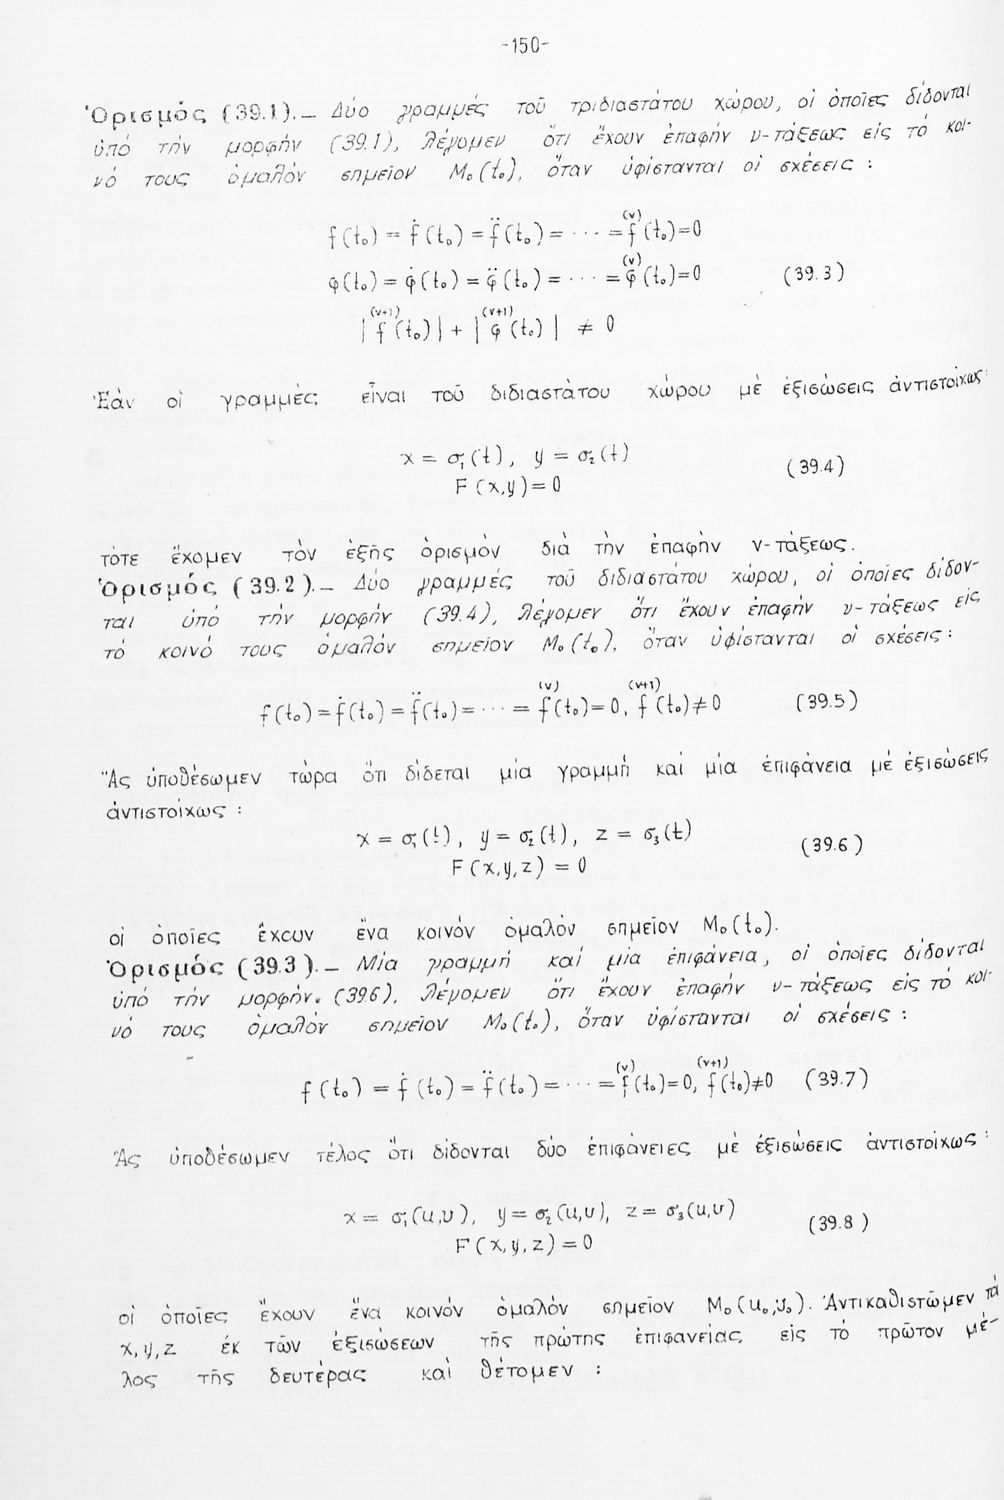 -150-
Ὁρισμός (39.1).– Δύο γραμμές τοῦ τριδιαστάτου χώρου, οἱ ὁποῖες δίδονται
ὑπό τήν μορφήν (39.1), λέγομεν ὅτι ἔχουν ἐπαφήν ν-τάξεως εἰς τό κοι-
νό τους ὁμαλόν σημεῖον M₀(t₀), ὅταν ὑφίστανται οἱ σχέσεις :
f(t₀) = ḟ(t₀) = f̈(t₀) = ··· = f⁽ᵛ⁾(t₀)=0
φ(t₀) = φ̇(t₀) = φ̈(t₀) = ··· = φ⁽ᵛ⁾(t₀)=0 (39.3)
|f⁽ᵛ⁺¹⁾(t₀)| + |φ⁽ᵛ⁺¹⁾(t₀)| ≠ 0
Ἐάν οἱ γραμμές εἶναι τοῦ διδιαστάτου χώρου μέ ἐξισώσεις ἀντιστοίχως:
x = σ₁(t), y = σ₂(t) (39.4)
F(x,y)=0
τότε ἔχομεν τόν ἑξῆς ὁρισμόν διά τήν ἐπαφήν ν-τάξεως.
Ὁρισμός (39.2).– Δύο γραμμές τοῦ διδιαστάτου χώρου, οἱ ὁποῖες δίδον-
ται ὑπό τήν μορφήν (39.4), λέγομεν ὅτι ἔχουν ἐπαφήν ν-τάξεως εἰς
τό κοινό τους ὁμαλόν σημεῖον M₀(t₀), ὅταν ὑφίστανται οἱ σχέσεις:
f(t₀) = ḟ(t₀) = f̈(t₀) = ··· = f⁽ᵛ⁾(t₀)=0, f⁽ᵛ⁺¹⁾(t₀)≠0 (39.5)
Ἄς ὑποθέσωμεν τώρα ὅτι δίδεται μία γραμμή καί μία ἐπιφάνεια μέ ἐξισώσεις
ἀντιστοίχως :
x = σ₁(t), y = σ₂(t), z = σ₃(t) (39.6)
F(x,y,z) = 0
οἱ ὁποῖες ἔχουν ἕνα κοινόν ὁμαλόν σημεῖον M₀(t₀).
Ὁρισμός (39.3).– Μία γραμμή καί μία ἐπιφάνεια, οἱ ὁποῖες δίδονται
ὑπό τήν μορφήν. (39.6), λέγομεν ὅτι ἔχουν ἐπαφήν ν-τάξεως εἰς τό κοι-
νό τους ὁμαλόν σημεῖον M₀(t₀), ὅταν ὑφίστανται οἱ σχέσεις :
f(t₀) = ḟ(t₀) = f̈(t₀) = ··· = f⁽ᵛ⁾(t₀)=0, f⁽ᵛ⁺¹⁾(t₀)≠0 (39.7)
Ἄς ὑποθέσωμεν τέλος ὅτι δίδονται δύο ἐπιφάνειες μέ ἐξισώσεις ἀντιστοίχως :
x = σ₁(u,υ), y = σ₂(u,υ), z = σ₃(u,υ) (39.8)
F(x,y,z) = 0
οἱ ὁποῖες ἔχουν ἕνα κοινόν ὁμαλόν σημεῖον M₀(u₀,υ₀). Ἀντικαθιστῶμεν τά
x,y,z ἐκ τῶν ἐξισώσεων τῆς πρώτης ἐπιφανείας εἰς τό πρῶτον μέ-
λος τῆς δευτέρας καί θέτομεν :